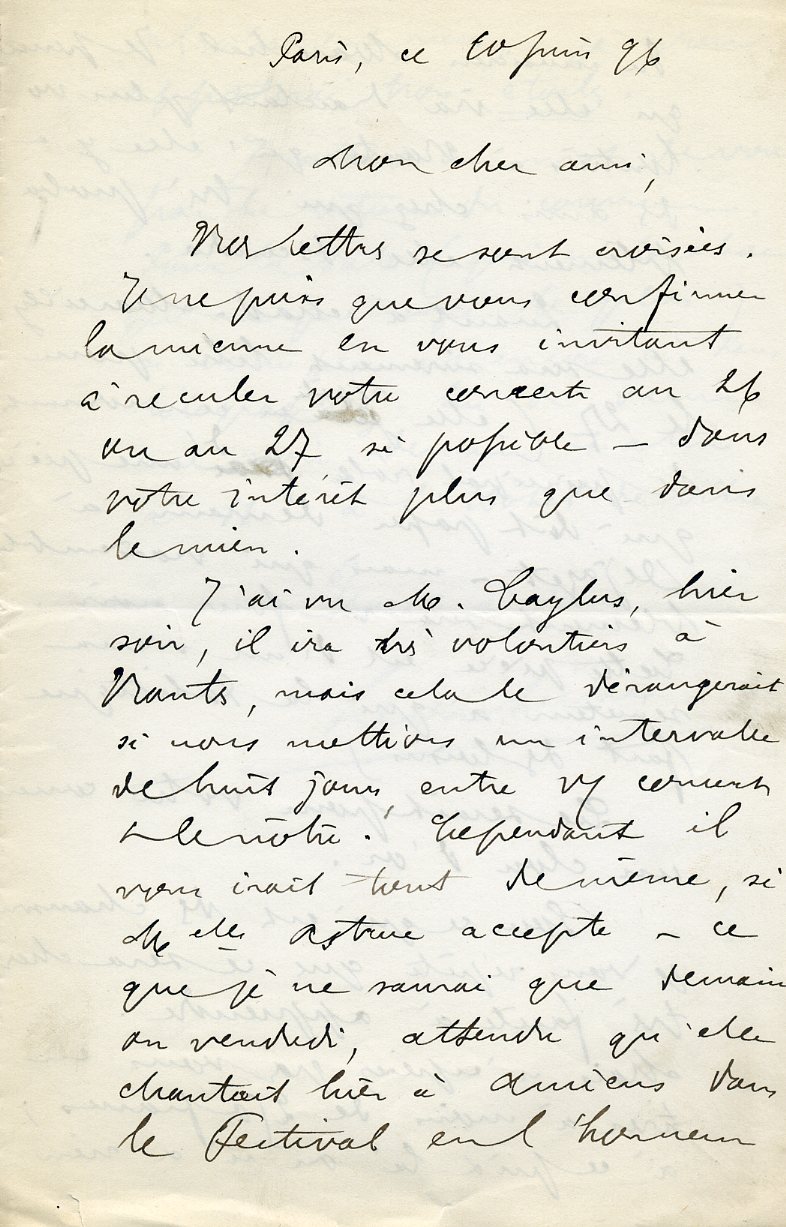 Paris, ce 10 juin 96
Mon cher ami,
Nos lettres se sont croisées.
Je ne puis que vous confirmer
la mienne en vous invitant
à reculer votre concert au 26
ou au 27 si possible – dans
votre intérêt plus que dans
le mien.
J'ai vu M. Caylus, hier
soir, il ira très volontiers à
Nantes, mais cela le dérangerait
si nous mettions un intervalle
de huit jours entre vs concerts
& le nôtre. Cependant il
vous irait tout de même, si
Melle Astruc accepte – ce
que je ne saurai que demain
ou vendredi, attendu qu'elle
chantait hier à Amiens dans
le Festival en l'honneur